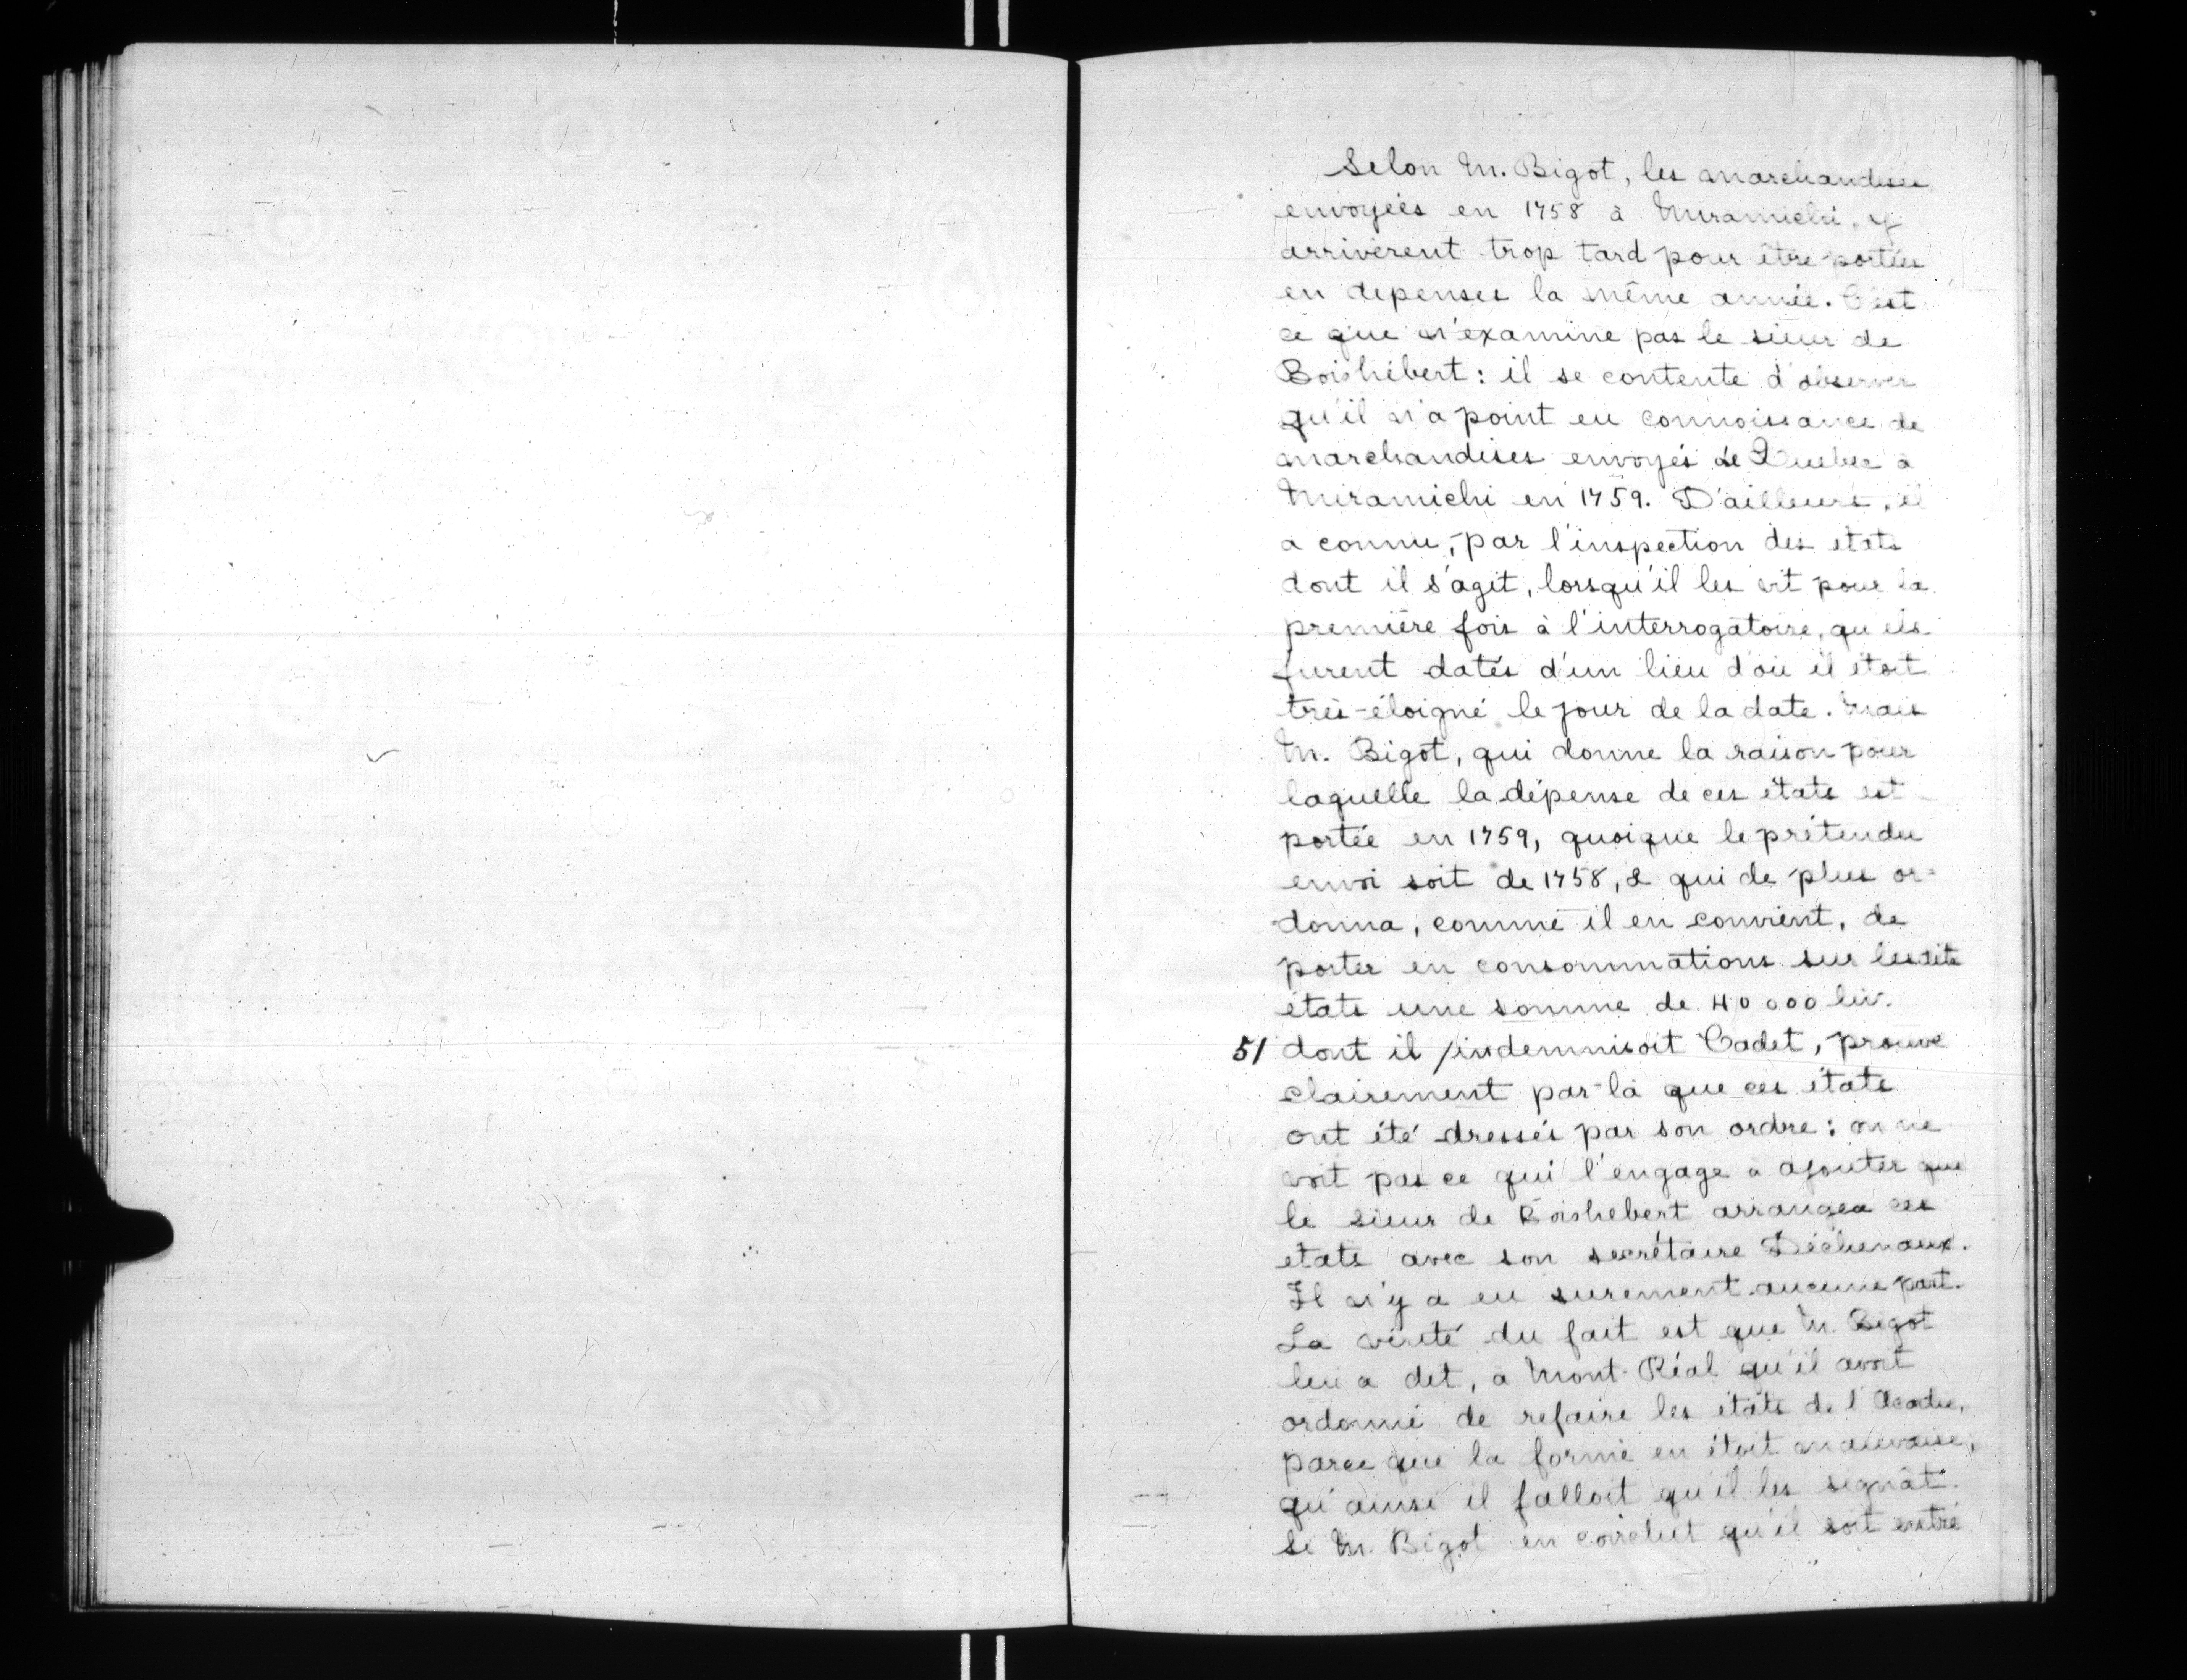 Selon M. Bigot, les marchandises
envoyées en 1758 à Miramichi, y
arrivèrent trop tard pour être portées
en depenses la même année. C'est
ce que n'examine pas le sieur de
Boishébert : il se contente d'observer
qu'il n'a point eu connoissance de
marchandises envoyés de Quebec à
Miramichi en 1759. D'ailleurs, il
a connu, par l'inspection des états
dont il s'agit, lorsqu'il les vit pour la
première fois à l'interrogatoire, qu'ils
furent datés d'un lieu d'où il étoit
très-éloigné le jour de la date. Mais
M. Bigot, qui donne la raison pour
laquelle la dépense de ces états est
portée en 1759, quoique le prétendu
envoi soit de 1758, & qui de plus or=
donna, comme il en convient, de
porter en consommations sur lesdits
états une somme de 40000 liv.
51 dont il /indemnisoit Cadet, prouve
clairement par-là que ces états
ont été dressés par son ordre : on ne
voit pas ce qui l'engage à ajouter que
le sieur de Boishebert arrangea ces
etats avec son secrétaire Déchenaux.
Il n'y a eu surement aucune part.
La vérité du fait est que M. Bigot
lui a dit, à Mont-Réal qu'il avoit
ordonné de refaire les états de l'Acadie,
parce que la forme en étoit mauvaise,
qu'ainsi il falloit qu'il les signât.
Si M. Bigot en conclut qu'il soit entré